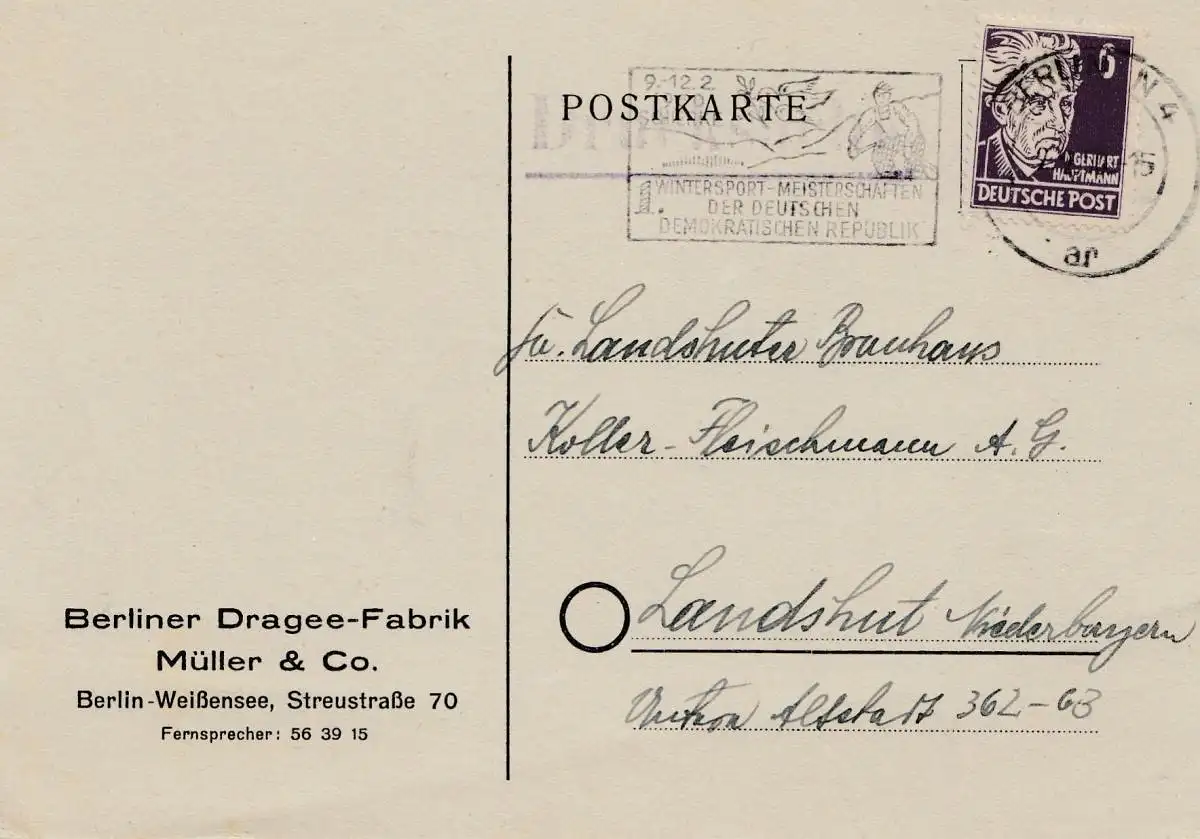 POSTKARTE
9.-12.2
1. WINTERSPORT-MEISTERSCHAFTEN
DER DEUTSCHEN
DEMOKRATISCHEN REPUBLIK
6
GERHART
HAUPTMANN
DEUTSCHE POST
BERLIN N 4
15
ar
Fa. Landshuter Brauhaus
Koller-Fleischmann A. G.
Landshut Niederbayern
Altstadt 362-63
Berliner Dragee-Fabrik
Müller & Co.
Berlin-Weißensee, Streustraße 70
Fernsprecher: 56 39 15